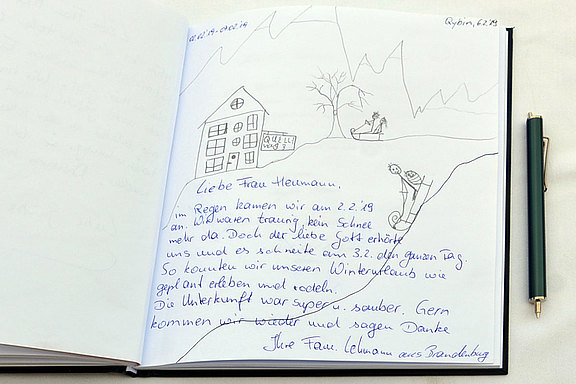 02.02.'19-07.02.'19
Oybin, 6.2.'19
QUELL
WEG 3
Liebe Frau Heumann,
im Regen kamen wir am 2.2.'19
an. Wir waren traurig, kein Schnee
mehr da. Doch der liebe Gott erhörte
uns und es schneite am 3.2. den ganzen Tag.
So konnten wir unseren Winterurlaub wie
geplant erleben und rodeln.
Die Unterkunft war super u. sauber. Gern
kommen wir wieder und sagen Danke
Ihre Fam. Lehmann aus Brandenburg